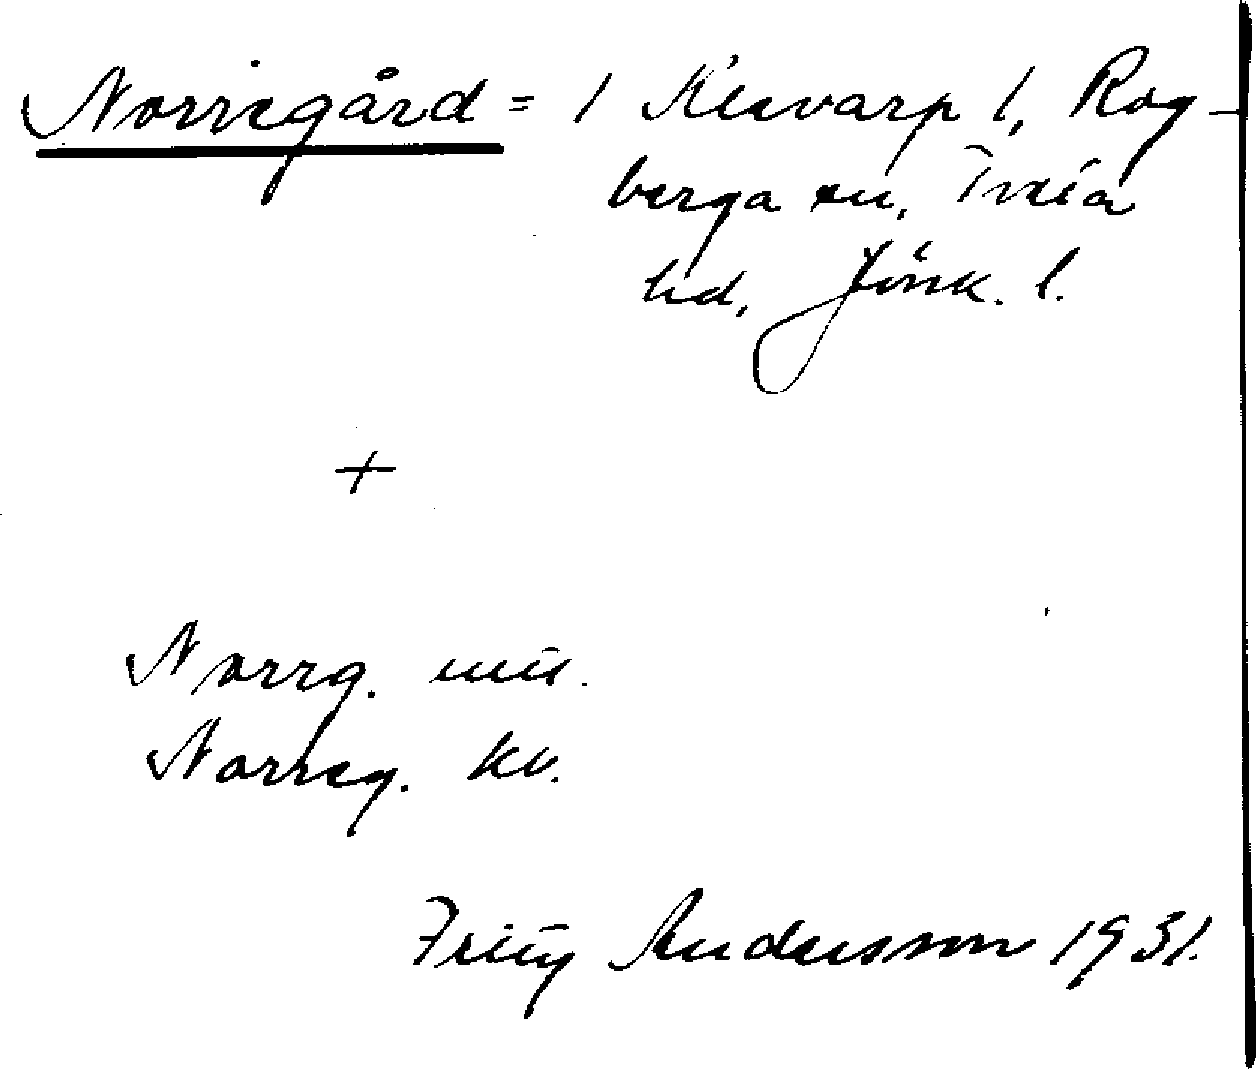 Norregård = 1 Klevarp 1, Rog-
berga sn, Tveta
hd, Jönk. l.
+
Norrg.
Norreg. kv.
Fritz Andersson 1931.